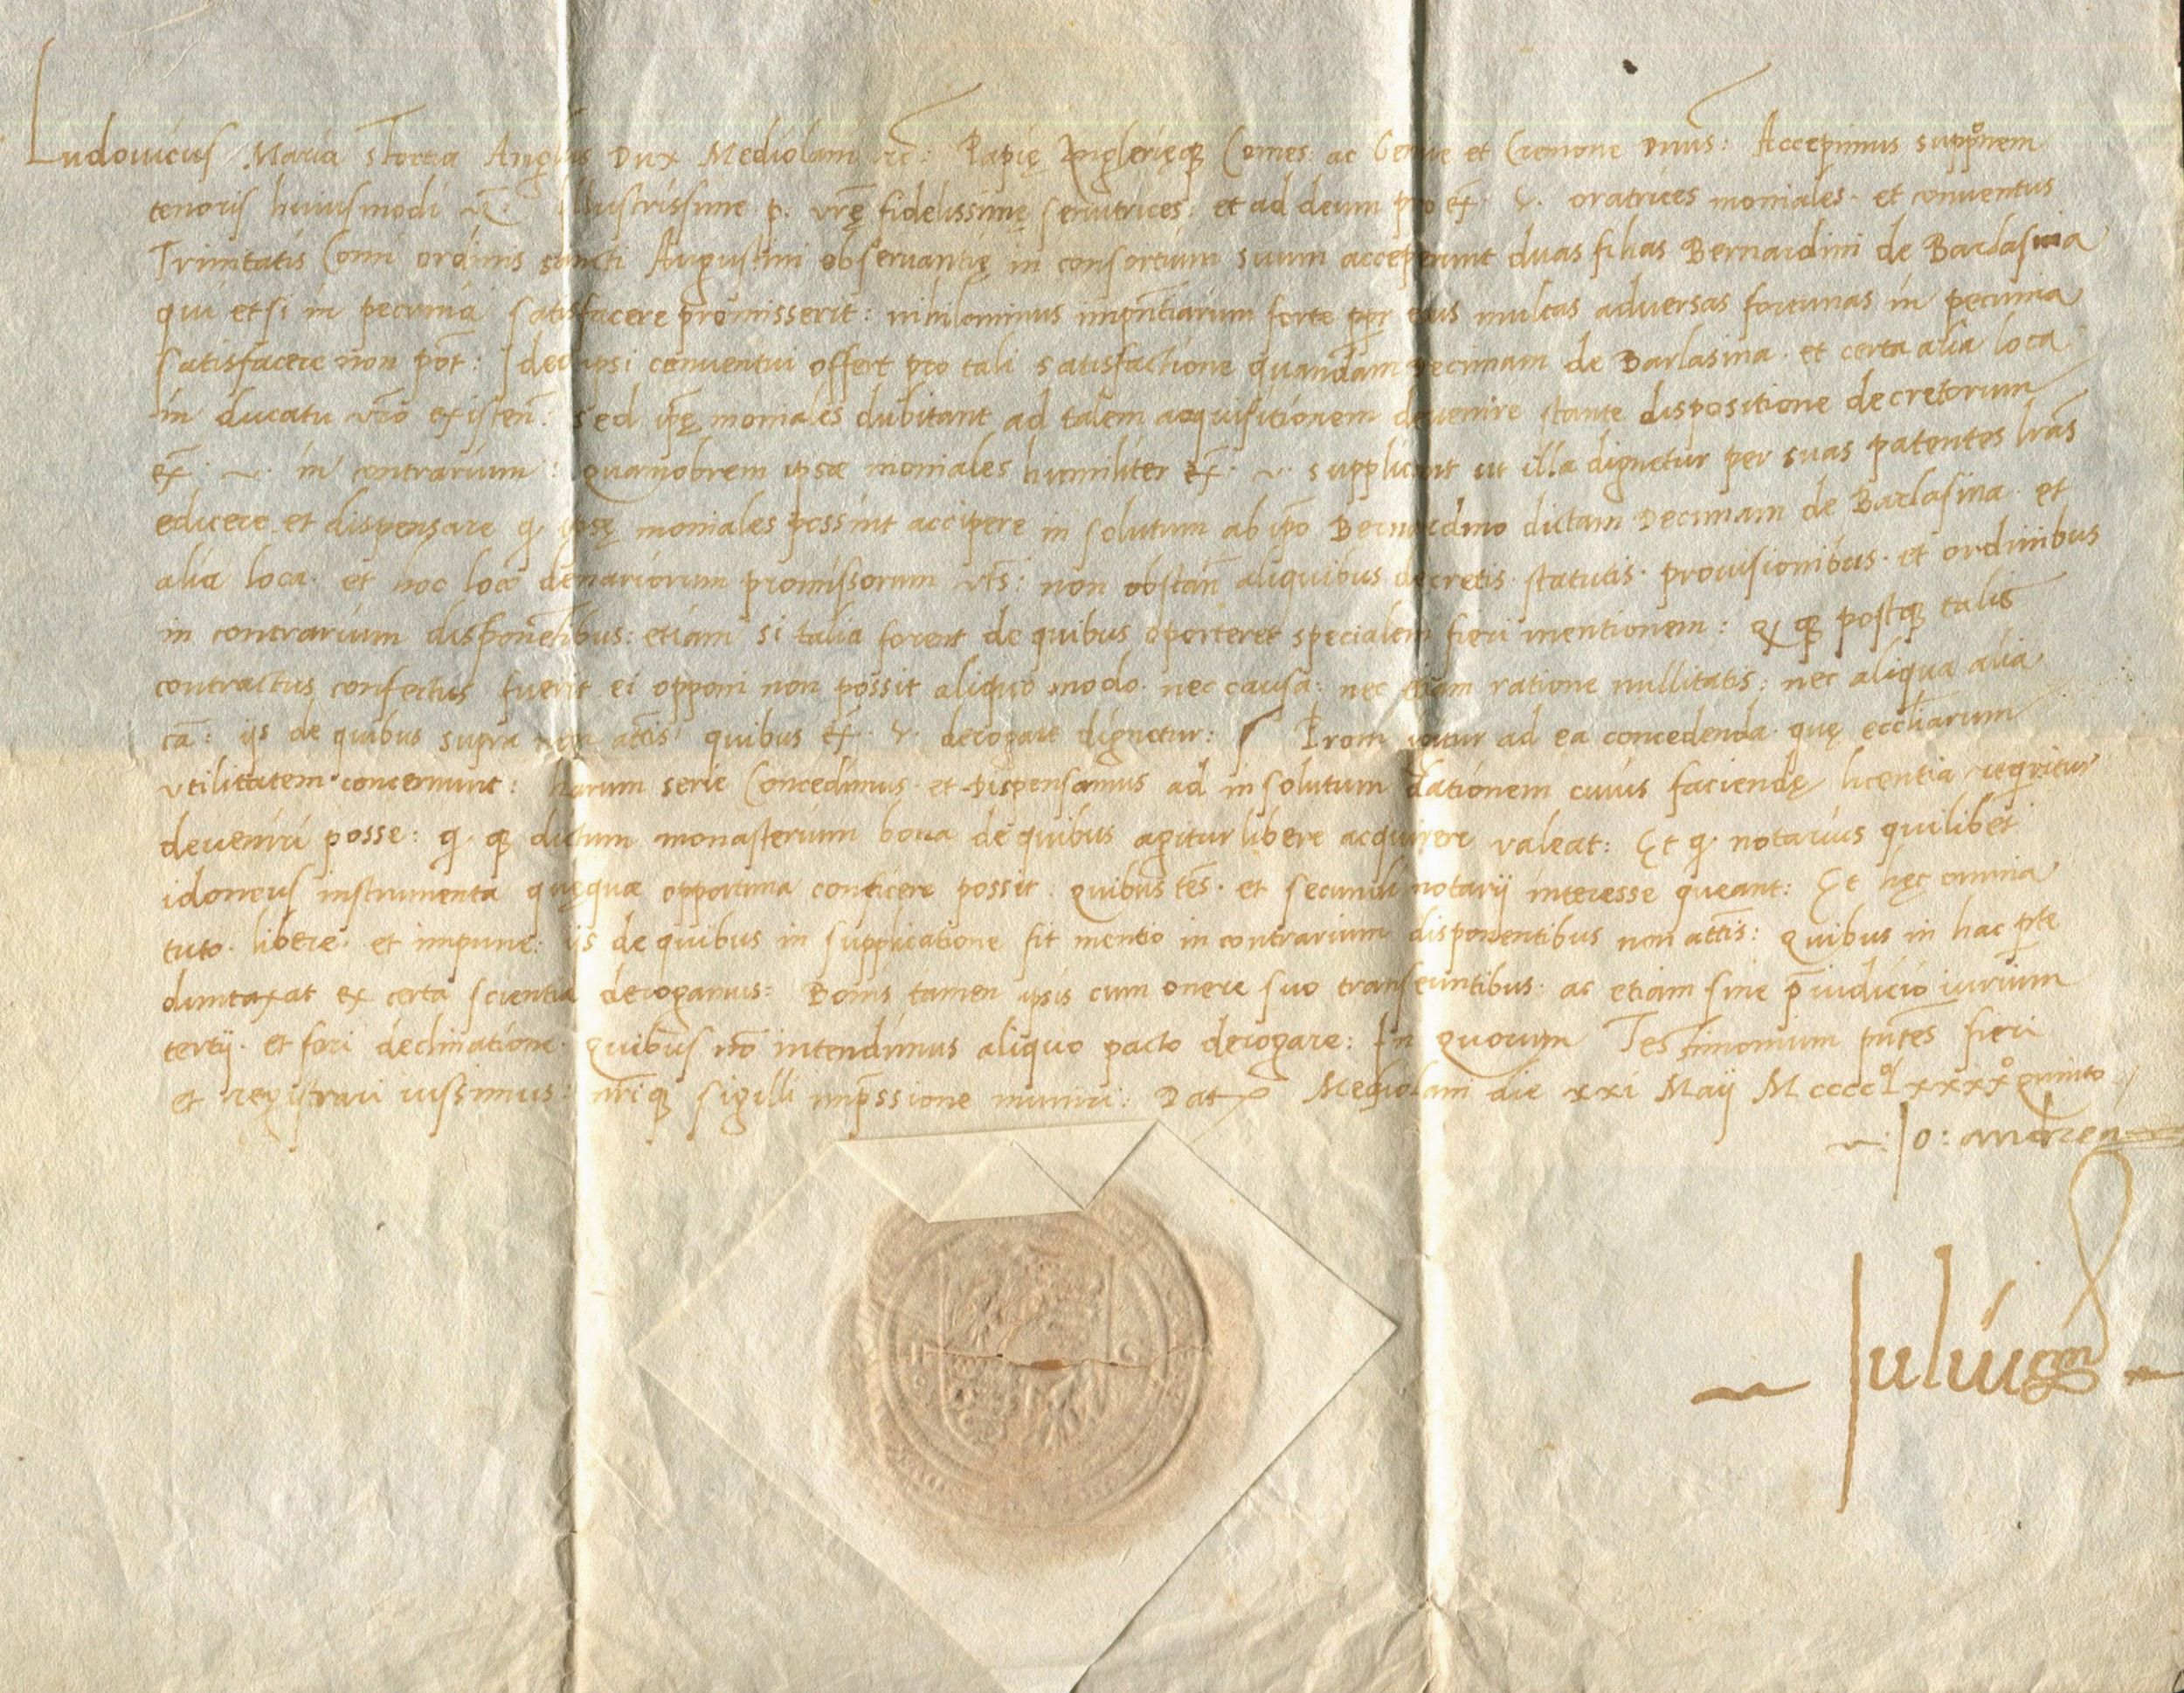 Ludovicus Maria Sfortia Anglus Dux Mediolani &c̃: Papię Anglerięq; Comes: ac Genue et Cremone Dn̄us: Accepimus suppo̊nem
tenoris huiusmodi vz̃. Illustrissime p. vr̃ę fidelissimę servitrices: et ad deum pro ex̃. v. oratrices moniales. et conventus
Trinitatis Comi ordinis sancti Augustini observantię in consortium suum acceperunt duas filias Bernardini de Barlasina
qui etsi in pecunia satisfacere promisserit: nihilominus impn̄tiarum forte ppr̄ eius multas adversas fortunas in pecunia
satisfacere non pōt: Ideo ipsi conventui offert pro tali satisfactione quandam Decimam de Barlasina. et certa alia loca
in ducatu vr̃o existen̄: sed ip̄ę moniales dubitant ad talem acquisitionem devenire stante dispositione decretorum
ex̃. v. in contrarium: quamobrem ipsæ moniales humiliter ex̃. v. supplicant ut illa dignetur per suas patentes lr̃as
edicere et dispensare q̄ ipsę moniales possint accipere in solutum ab ip̄o Bernardino dictam Decimam de Barlasina. et
alia loca. et hoc loco denariorum promissorum vt s̄: non obstan̄ aliquibus decretis. statutis. provisionibus. et ordinibus
in contrarium dispone̅tibus: etiam si talia forent de quibus oporteret specialem fieri mentionem: q̄ q; postq̄ talis
contractus confectus fuerit ei opponi non possit aliquo modo. nec causa: nec etiam ratione nullitatis: nec aliqua alia
cā: ijs de quibus supra non att̄is quibus ex̃. v. derogare dignetur: Proni igitur ad ea concedenda. quę eccl̄iarum
utilitatem concernunt: harum serie Concedimus. et Dispensamus ad in solutum dationem cuius faciendę licentia req̄ritur
deveniri posse: q̄ q; dictum monasterium bona de quibus agitur libere acquirere valeat: Et q̄ notarius quilibet
idoneus instrumenta quęquæ opportuna conficere possit. quibus tēs. et secundi notarij interesse queant: Et hęc omnia
tuto. libere. et impune: ijs de quibus in supplicatione fit mentio in contrarium disponentibus non att̄is: Quibus in hac p̄te
dumtaxat ex certa scientia derogamus: Bonis tamen ipsis cum onere suo transeuntibus. ac etiam sine p̄iudicio iurium
tertij. et fori declinatione. quibus nō intendimus aliquo pacto derogare: In quorum Testimonium pn̄tes fieri
et registrari iussimus: nr̄iq; sigilli imp̄ssione muniri: Dat. Mediolani die xxi Maij M cccc°lxxxx° quinto
Io: andrea